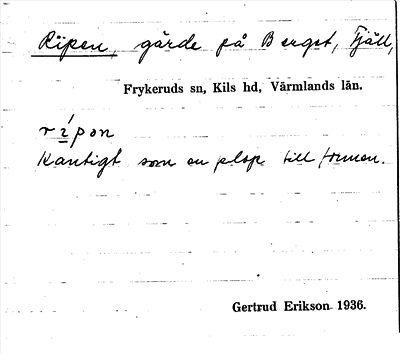 Ripen, gärde på Berget, Fjäll,
Frykeruds sn, Kils hd, Värmlands län.
rípən
Kantigt som en plop till formen.
Gertrud Erikson 1936.